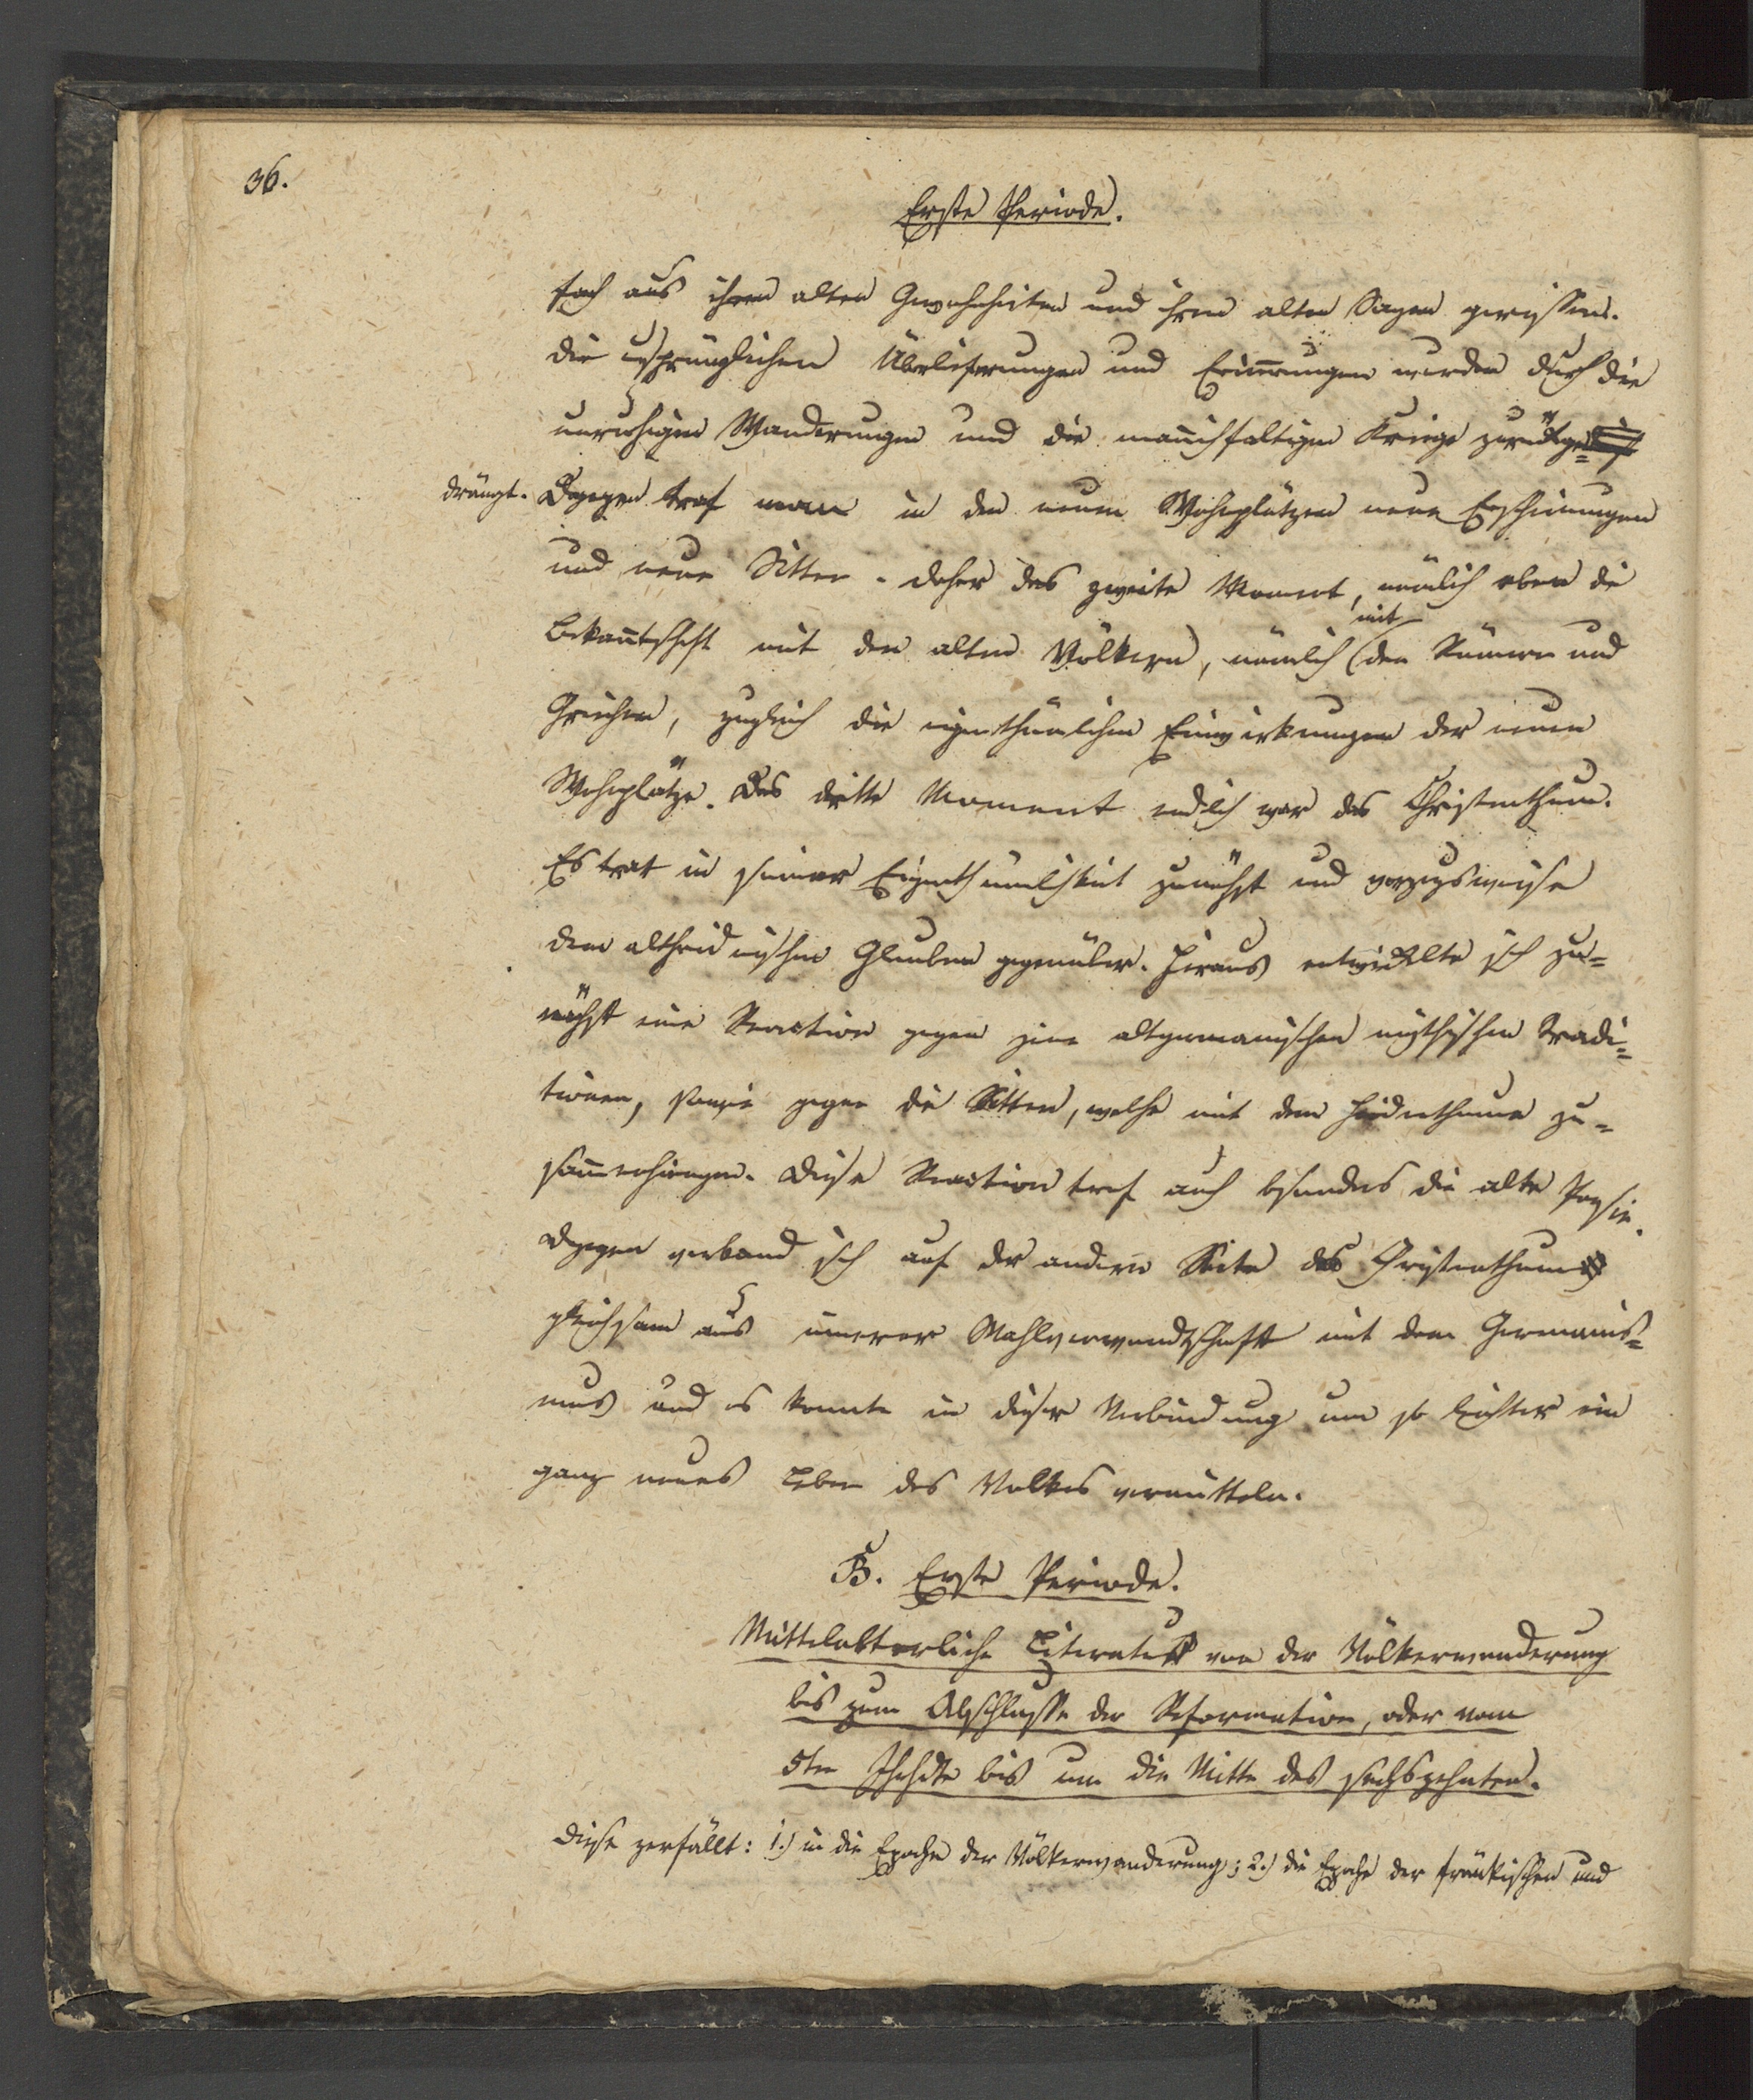 36.
Erste Periode.
fach aus ihren alten Gewohnheiten und ihren alten Sagen gerissen.
Die ursprünglichen Überlieferungen und Erinnerungen wurden durch die
unruhigen Wanderungen und die mannichfaltigen Kriege zurückge=
drängt. Dagegen traf man in den neuen Wohnplätzen neue Erscheinungen
und neue Sitten. Daher das zweite Moment, nämlich eben die
Bekanntschaft mit den alten Völkern, nämlich mit den Römern und
Griechen, zugleich die eigenthümlichen Einwirkungen der neuen
Wohnplätze. Das dritte Moment endlich war das Christenthum.
Es trat in seiner Eigenthümlichkeit zunächst und vorzugsweise
dem altheidnischen Glauben gegenüber. Hieraus entwickelte sich zu=
nächst eine Reaction gegen jene altgermanischen mythischen Tradi=
tionen, sowie gegen die Sitten, welche mit dem Heidenthume zu=
sammenhingen. Diese Reaction traf auch besonders die alte Poesie.
Dagegen verband sich auf der andern Seite das Christenthum
gleichsam aus innerer Wahlverwandtschaft mit dem Germanis=
mus und es konnte in dieser Verbindung um so leichter ein
ganz neues Leben des Volkes vermitteln.
B. Erste Periode.
Mittelalterliche Literatur von der Völkerwanderung
bis zum Abschlusse der Reformation, oder vom
5ten Jhhdte bis um die Mitte des sechszehnten.
Diese zerfällt: 1.) in die Epoche der Völkerwanderung; 2.) die Epoche der fränkischen und